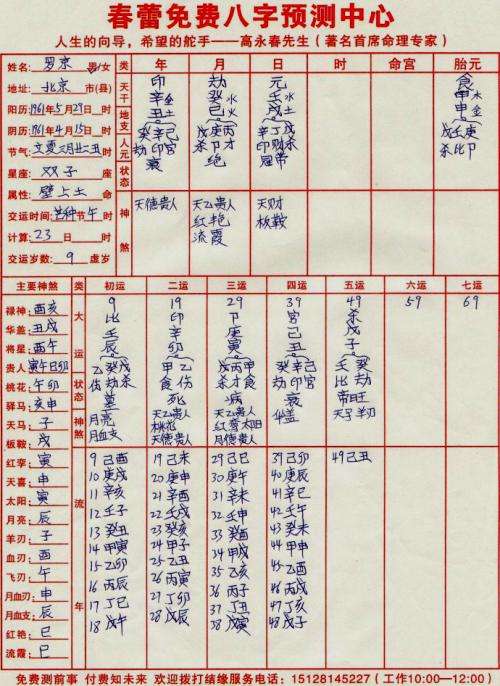 春蕾免费八字预测中心
人生的向导，希望的舵手——高永春先生（著名首席命理专家）
姓名：罗京 男/女 类 年 月 日 时 命宫 胎元
地址：北京 市(县) 天干 印 劫 元 食
阳历：1961年5月29日 时 辛金 癸水 壬水 甲木
阴历：1961年4月15日 时 地支 丑土 巳火 戌土 申金
节气：立夏 丑 时 人元 癸辛己 戊庚丙 辛丁戊 戊壬庚
劫印官 杀卩才 印财杀 杀比卩
星座：双子 座 状态 衰 绝 冠带
属性：壁上土 命 神煞 天德贵人 天乙贵人 天财
交运时间：芒种节午 时 红艳 板鞍
计算：23 日 时 流霞
交运岁数：9 虚岁
主要神煞 类 初运 二运 三运 四运 五运 六运 七运
禄神：酉亥 大运 9 19 29 39 49 59 69
华盖：丑戌 比 印 卩 官 杀
将星：酉午 壬 辛 庚 己 戊
贵人：寅午巳卯 辰 卯 寅 丑 子
桃花：午卯 状态 乙癸戊 甲乙 戊丙甲 癸辛己 壬癸
伤劫杀 食伤 杀才食 劫印官 比劫
驿马：亥申 墓 死 病 衰 帝旺
天马：子 神煞 月亮 天乙贵人 天乙贵人 华盖 羊刃
板鞍：戌 月血支 桃花 红鸾太阳
天德贵人 月德贵人
红鸾：寅 流年 9己酉 19己未 29己巳 39己卯 49己丑
天喜：申 10庚戌 20庚申 30庚午 40庚辰
太阳：寅 11辛亥 21辛酉 31辛未 41辛巳
月亮：辰 12壬子 22壬戌 32壬申 42壬午
羊刃：子 13癸丑 23癸亥 33癸酉 43癸未
血刃：酉 14甲寅 24甲子 34甲戌 44甲申
飞刃：午 15乙卯 25乙丑 35乙亥 45乙酉
月血刃：申 16丙辰 26丙寅 36丙子 46丙戌
月血支：辰 17丁巳 27丁卯 37丁丑 47丁亥
红艳：巳 18戊午 28戊辰 38戊寅 48戊子
流霞：巳
免费测前事 付费知未来 欢迎拨打结缘服务电话：15128145227（工作10:00—12:00）